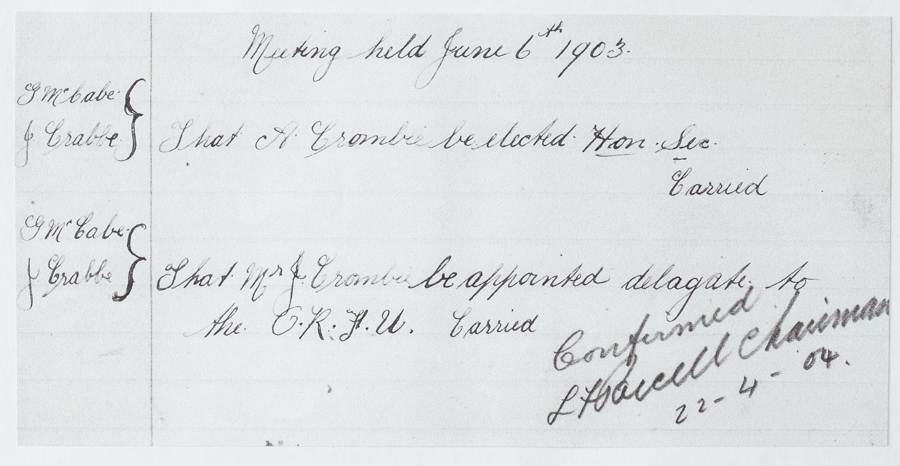 Meeting held June 6th 1903.
G McCabe
J Crabbe
That A Crombie be elected Hon. Sec.
Carried
G McCabe
J Crabbe
That Mr J. Crombie be appointed delagate to
the O.R.F.U. Carried
Confirmed
Chairman
22-4-04.